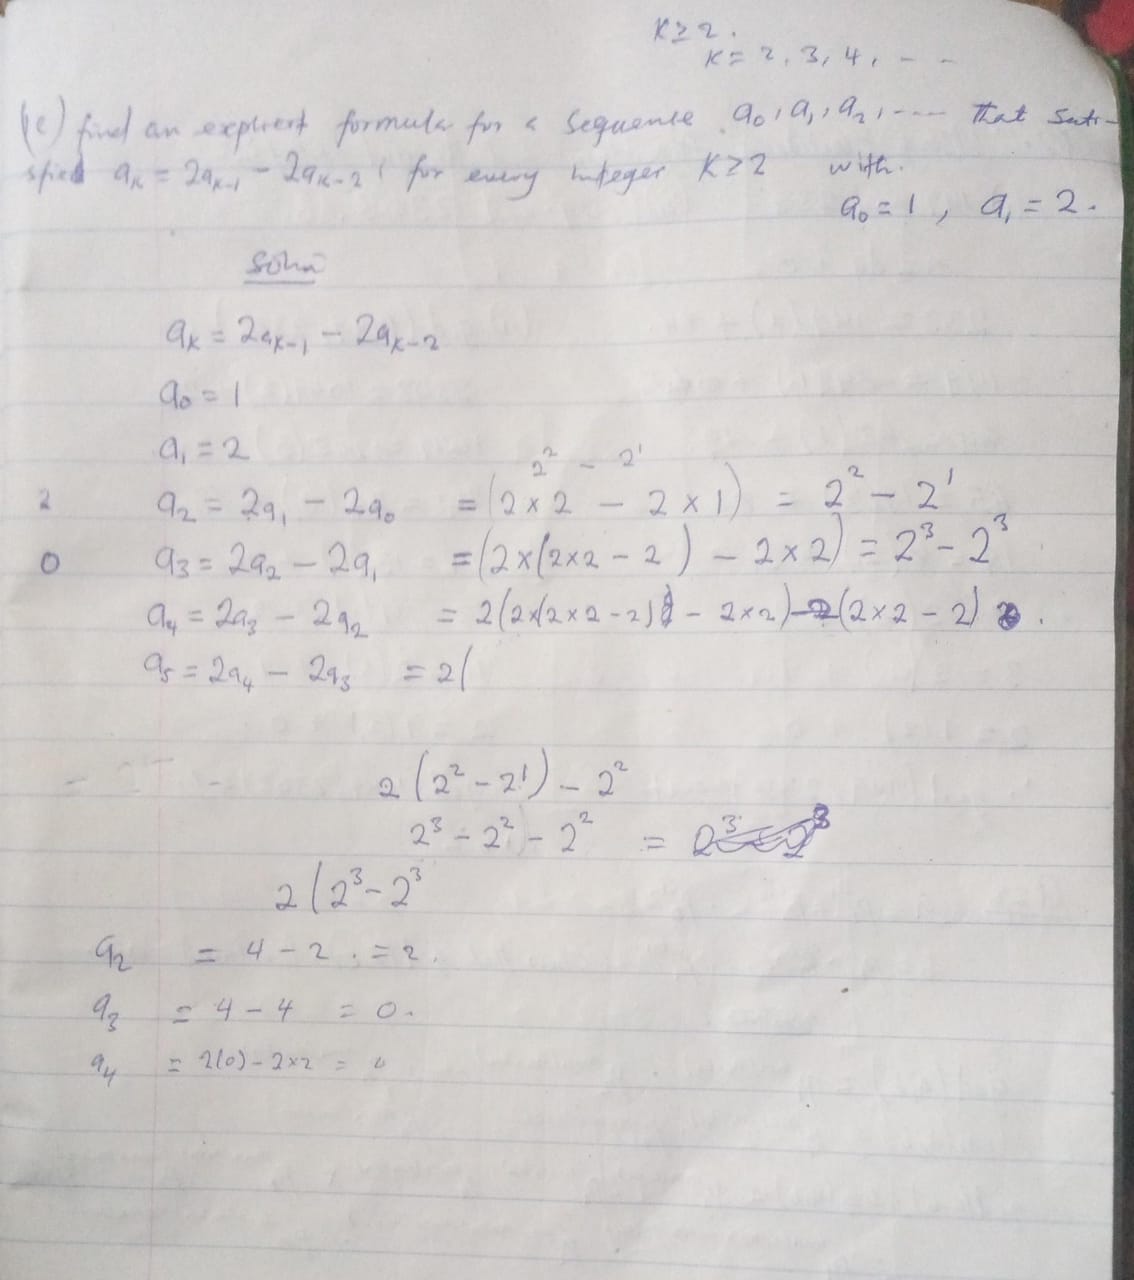 K ≥ 2.
K = 2, 3, 4, - -
(c) find an explicit formula for a sequence a₀, a₁, a₂, ---- that sati-
sfied aₖ = 2aₖ₋₁ - 2aₖ₋₂, for every integer K ≥ 2 with.
a₀ = 1, a₁ = 2.
Soln
aₖ = 2aₖ₋₁ - 2aₖ₋₂
a₀ = 1
a₁ = 2
2² - 2¹
2 a₂ = 2a₁ - 2a₀ = (2×2 - 2×1) = 2² - 2¹
0 a₃ = 2a₂ - 2a₁ = (2×(2×2-2) - 2×2) = 2³ - 2³
a₄ = 2a₃ - 2a₂ = 2(2×(2×2-2) - 2×2) - 2(2×2-2) .
a₅ = 2a₄ - 2a₃ = 2(
2(2² - 2¹) - 2²
2³ - 2² - 2² = 2³ - 2³
2(2³ - 2³
a₂ = 4 - 2 . = 2.
a₃ = 4 - 4 = 0.
a₄ = 2(0) - 2×2 =